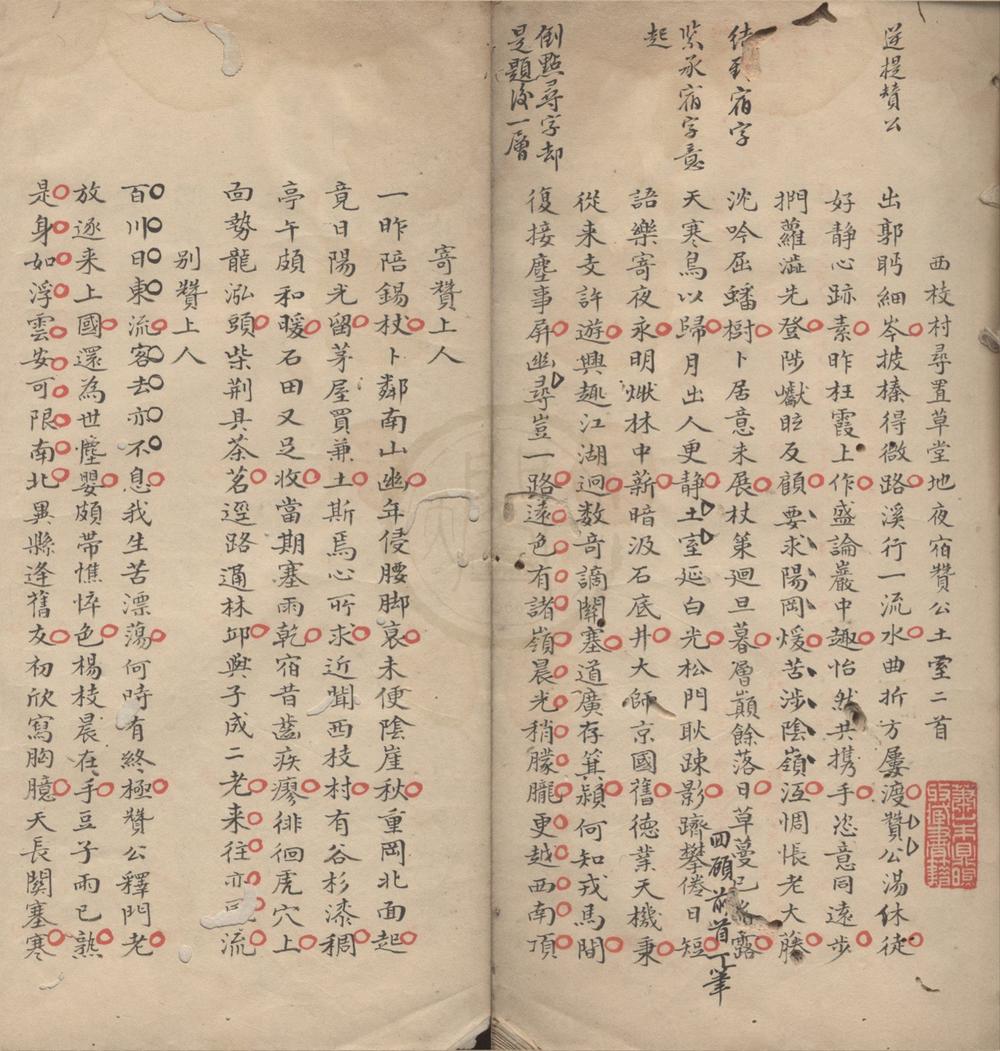 西枝村尋置草堂地夜宿贊公土室二首
逆提贊公
出郭眄細岑披榛得微路溪行一流水曲折方屢渡贊公湯休徒
好静心跡素昨枉霞上作盛論巖中趣怡然共携手恣意同遠步
捫蘿澁先登陟巘眩反顧要求陽岡煖苦涉陰嶺沍惆悵老大藤
沈吟屈蟠樹卜居意未展杖策廻且暮層巔餘落日草蔓已露
宿字
緊承宿字意
起
天寒鳥以歸月出人更静土室延白光松門耿疎影躋攀倦日短
回顧前首下筆
語樂寄夜永明燃林中薪暗汲石底井大師京國舊德業天機秉
從来支許遊興趣江湖迥数奇謫關塞道廣存箕潁何知戎馬間
倒點尋字却
是題後一層
復接塵事屏幽尋豈一路遠色有諸嶺晨光稍朦朧更越西南頂
寄贊上人
一昨陪錫杖卜鄰南山幽年侵腰脚衰未便陰崖秋重岡北面起
竟日陽光留茅屋買兼土斯焉心所求近聞西枝村有谷杉漆稠
亭午頗和暖石田又足收當期塞雨乾宿昔齒疾瘳徘徊虎穴上
面勢龍泓頭柴荆具茶茗逕路通林邱與子成二老来往亦流
別贊上人
百川日東流客去亦不息我生苦漂蕩何時有終極贊公釋門老
放逐来上國還為世塵嬰頗帶憔悴色楊枝晨在手豆子雨已熟
是身如浮雲安可限南北異縣逢舊友初欣寫胸臆天長關塞寒